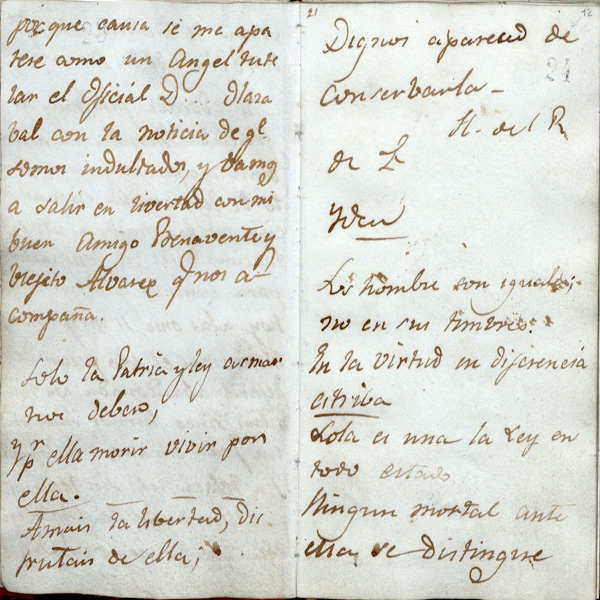 porque causa se me apa
rese como un Angel tute
lar el oficial D... Olaza
bal con la noticia de q.e
somos indultados, y vamos
a salir en livertad con mi
buen Amigo Benavente y
biejito Alvarez q.e nos a-
compaña.
Solo la Patria y ley
nos debero,
y p.r ella morir vivir por
ella.
Amais la libertad, dis
frutais de ella;
21
12
21
Dignos apareced de
conserbarla-
H. del R
de L
Yden
Los hombre son iguales;
no en sus timbres:
En la virtud su diferencia
estriba
Sola es una la Ley en
todo estado
Ningun mortal ante
ella se distingue